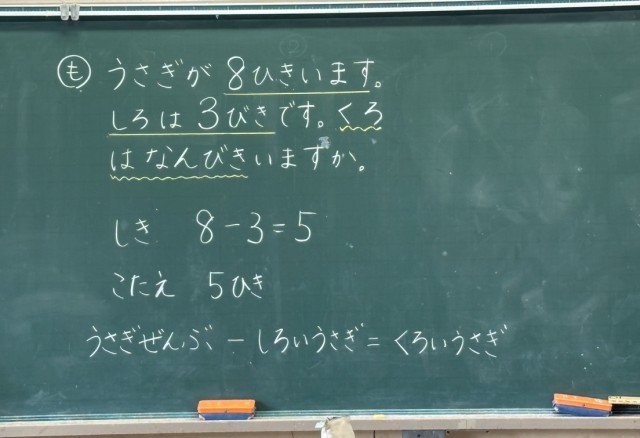 も うさぎが 8ひきいます。
しろは 3びきです。くろ
はなんびきいますか。
しき 8-3=5
こたえ 5ひき
うさぎぜんぶ-しろいうさぎ=くろいうさぎ